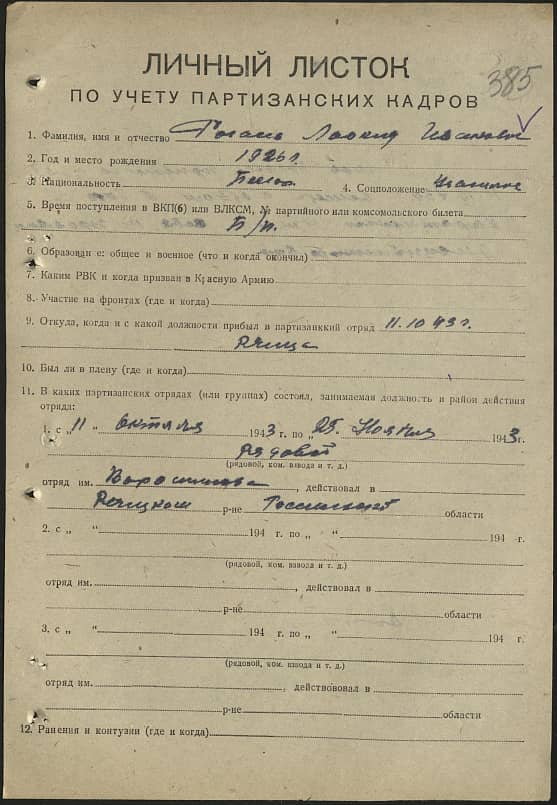 ЛИЧНЫЙ ЛИСТОК
385
ПО УЧЕТУ ПАРТИЗАНСКИХ КАДРОВ
1. Фамилия, имя и отчество Иванович
2. Год и место рождения 1926 г.
3. Национальность Белор 4. Соцположение
5. Время поступления в ВКП(б) или ВЛКСМ, № партийного или комсомольского билета
Б/п.
6. Образован е: общее и военное (что и когда окончил)
7. Каким РВК и когда призван в Красную Армию
8. Участие на фронтах (где и когда)
9. Откуда, когда и с какой должности прибыл в партизанкий отряд 11.10 43 г.
Речица
10. Был ли в плену (где и когда)
11. В каких партизанских отрядах (или группах) состоял, занимаемая должность и район действия
отряда:
1. с „ 11 “ октября 1943 г. по „ 25. Ноября 1943 г.
рядовой
(рядовой, ком. взвода и т. д.)
отряд им. Ворошилова, действовал в
Речицком р-не Гомельской области
2. с „ “ 194 г. по „ “ 194 г.
(рядовой, ком. взвода и т. д.)
отряд им. , действовал в
р-не области
3. с „ “ 194 г. по „ “ 194 г.
(рядовой, ком. взвода и т. д.)
отряд им. , действовал в
р-не области
12. Ранения и контузии (где и когда)